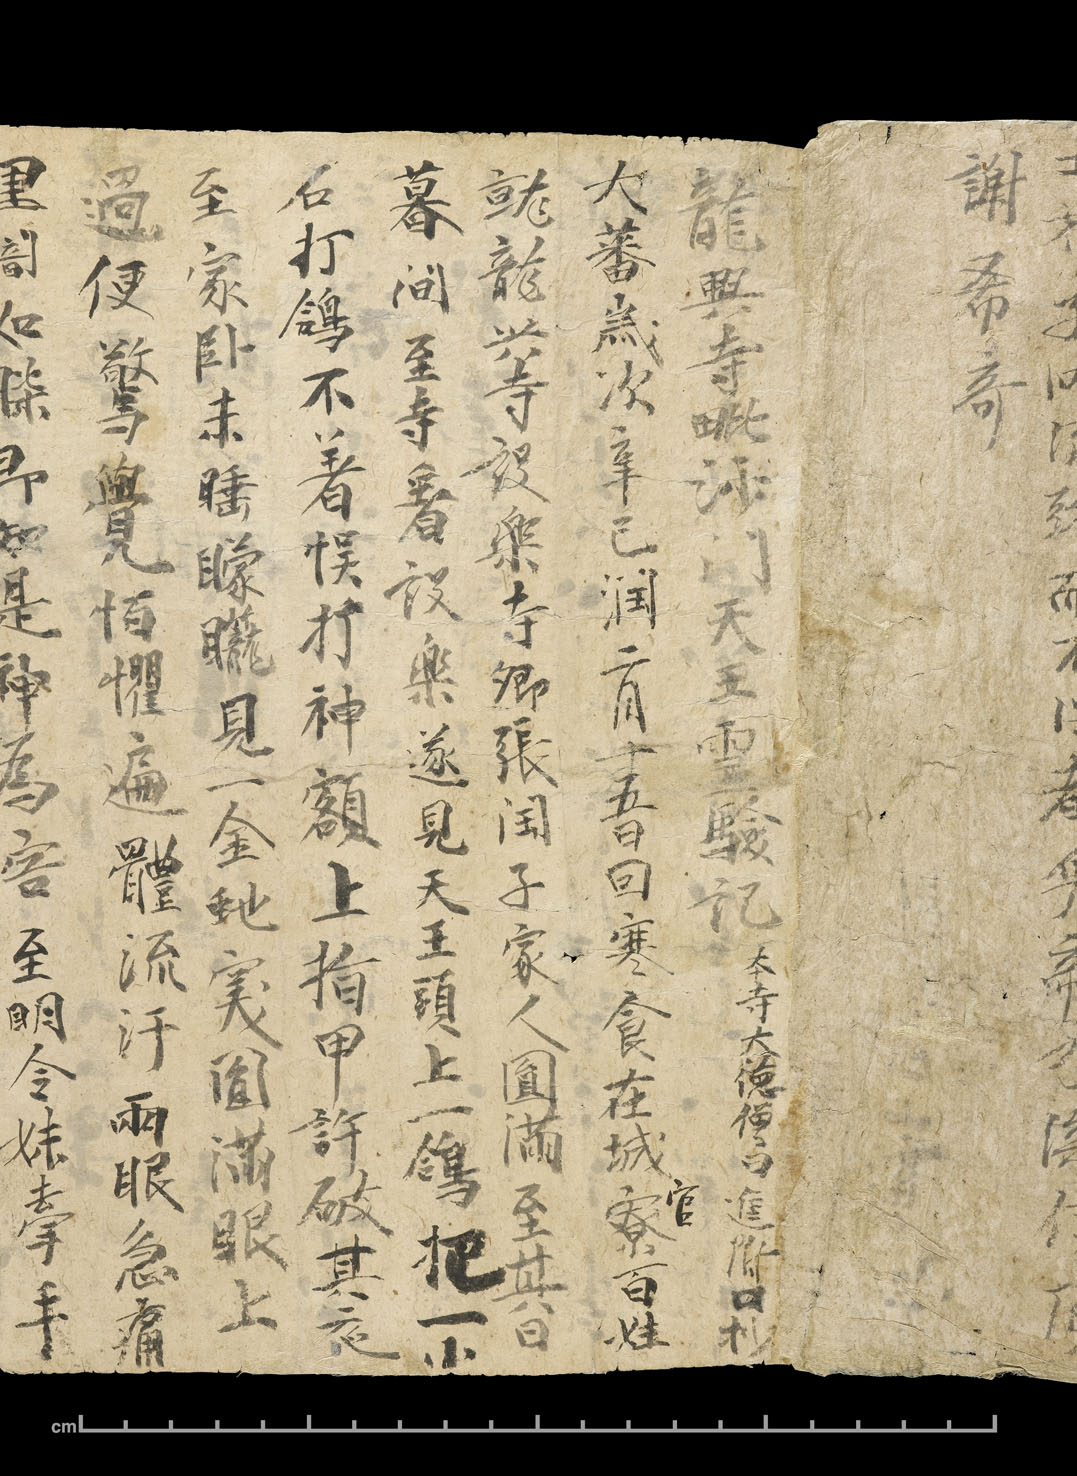 謝希奇
龍興寺毗沙門天王靈驗記 本寺大德僧日進附口抄
大蕃歲次辛巳潤二月十五日寒食在城官寮百姓
就龍興寺設樂寺卿張閏子家人圓滿至其日
暮間至寺看設樂遂見天王頭上一鴿把一小
石打鴿不着悮打神額上指甲許破其夜
至家卧未睡矇矓見一金虵突圓滿眼上
過便驚覺怕懼遍體流汗兩眼急痛
黑闇如柒即知是神為害至明令妹牽手